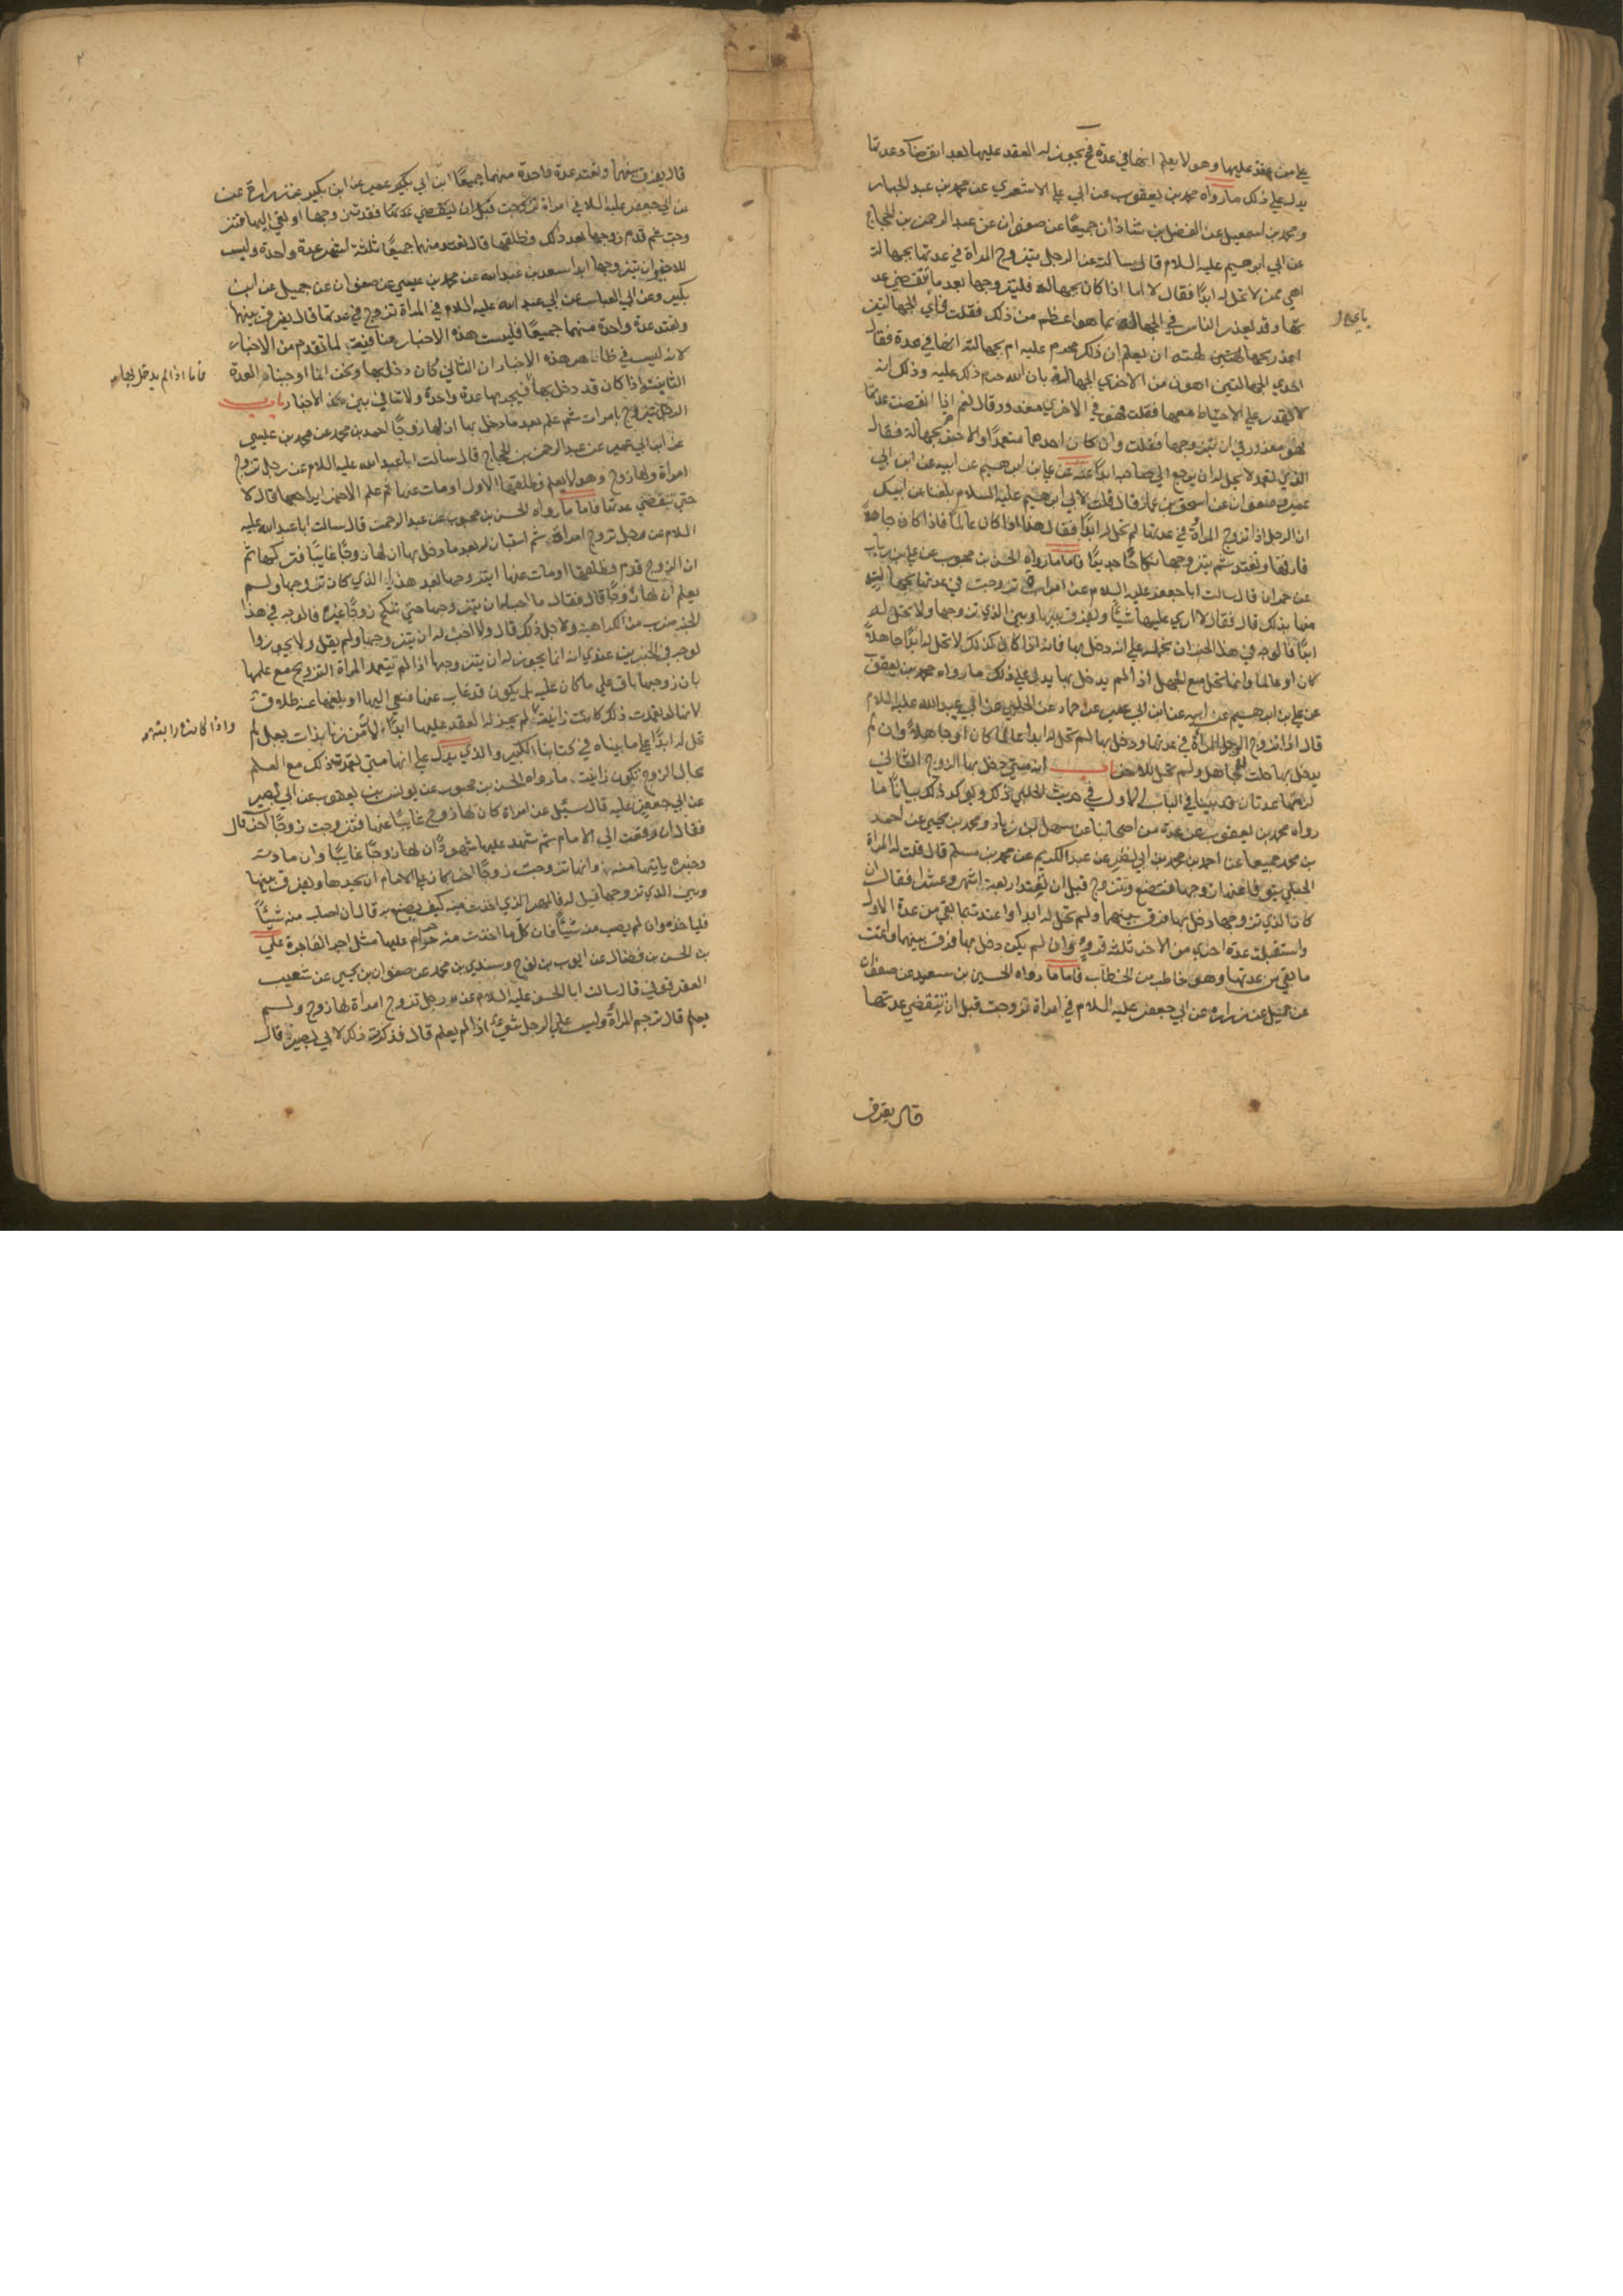 علي من عقد عليها وهو لا يعلم انها في عدة فح يجوز له العقد عليها بعد انقضاء عدتها
يدل علي ذلك ما رواه محمد بن يعقوب عن ابي علي الاشعري عن محمد بن عبد الجبار
ومحمد بن اسمعيل عن الفضل بن شاذان جميعًا عن صفوان عن عبد الرحمن بن الحجاج
عن ابي ابرهيم عليه السلام قال سالته عن الرجل يتزوج المراة في عدتها بجهالة
اهي ممن لا تحل له ابدًا فقال لا اما اذا كان بجهالة فليتزوجها بعد ما تنقضي عد
تها وقد يعذر الناس في الجهالة بما هو اعظم من ذلك فقلت فاي الجهالتين
باي
اعذر بجهالته ان يعلم ان ذلك محرم عليه ام بجهالته انها في عدة فقال
احدي الجهالتين اهون من الاخري الجهالة بان الله حرم ذلك عليه وذلك انه
لا يقدر علي الاحتياط معها فقلت فهو في الاخري معذور قال نعم اذا انقضت عدتها
فهو معذور في ان يتزوجها فقلت وان كان احدهما متعمدًا والاخر بجهالة فقال
الذي تعمد لا يحل له ان يرجع الي صاحبه ابدًا عنه عن علي بن ابرهيم عن ابيه عن ابن ابي
عمير عن صفوان عن اسحق بن عمار قال قلت لابي ابرهيم عليه السلام بلغنا عن ابيك
ان الرجل اذا تزوج المراة في عدتها لم تحل له ابدًا فقال هذا اذا كان عالمًا فاذا كان جاهلًا
فارقها وتعتد ثم يتزوجها نكاحًا جديدًا فاما ما رواه الحسن بن محبوب عن علي بن رياب
عن حمران قال سالت ابا جعفر عليه السلام عن امراة تزوجت في عدتها بجهالة
منها بذلك قال فقال لا اري عليها شيئًا ويفرق بينها وبين الذي تزوجها ولا تحل له
ابدًا فالوجه في هذا الخبر ان نحمله علي انه دخل بها فانه اذا كان كذلك لا تحل له ابدًا جاهلًا
كان او عالمًا وانما تحل مع الجهل اذا لم يدخل بها يدل علي ذلك ما رواه محمد بن يعقوب
عن علي بن ابرهيم عن ابيه عن ابن ابي عمير عن حماد عن الحلبي عن ابي عبد الله عليه السلام
قال اذا تزوج الرجل المراة في عدتها ودخل بها لم تحل له ابدا عالمًا كان او جاهلًا وان لم
يدخل بها حلت للجاهل ولم تحل للاخر باب انه متي دخل بها الزوج الثاني
لزمها عدتان قد بينا في الباب الاول في حديث الحلبي ذكر ويوكد ذلك بيانًا ما
رواه محمد بن يعقوب عن عدة من اصحابنا عن سهل بن زياد ومحمد بن يحيي عن احمد
بن محمد جميعا عن احمد بن محمد بن ابي نصر عن عبد الكريم عن محمد بن مسلم قال قلت له المراة
الحبلي يتوفا عنها زوجها فتضع وتتزوج قبل ان تعتد اربعة اشهر وعشرا فقال ان
كان الذي تزوجها دخل بها فرق بينهما ولم تحل له ابدا واعتدت بما بقي من عدة الاول
واستقبلت عدة اخري من الاخر ثلثة قروء وان لم يكن دخل بها فرق بينهما واتمت
ما بقي من عدتها وهو خاطب من الخطاب فاما ما رواه الحسين بن سعيد عن صفوان
عن جميل عن زرارة عن ابي جعفر عليه السلام في امراة تزوجت قبل ان تنقضي عدتها
قال يفرق
٢
قال يفرق بينهما وتعتد عدة واحدة منهما جميعًا ابن ابي عمير عن ابن بكير عن زرارة عن
عن ابي جعفر عليه السلا في امراة تزوجت قبل ان تنقضي عدتها فقدت زوجها او نعي اليها فتز
وجت ثم قدم زوجها بعد ذلك فطلقها قال تعتد منهما جميعًا ثلثة اشهر عدة واحدة وليس
للاخير ان يتزوجها ابدا سعد بن عبد الله عن محمد بن عيسي عن صفوان عن جميل عن ابن
بكير وعن ابي العباس عن ابي عبد الله عليه السلام في المراة تزوج في عدتها قال يفرق بينهما
وتعتد عدة واحدة منهما جميعًا فليست هذه الاخبار منافية لما تقدم من الاخبار
لانه ليس في ظاهر هذه الاخبار ان الثاني كان دخل بها ونحن انما اوجبنا العدة
فاما اذا لم يدخل بها
الثانية اذا كان قد دخل بها فيجزيها عدة واحدة ولا تنافي بين الاخبار باب
الرجل يتزوج بامراة ثم علم بعد ما دخل بها ان لها زوجًا احمد بن محمد عن محمد بن عيسي
عن ابن ابي عمير عن عبد الرحمن بن الحجاج قال سالت ابا عبد الله عليه السلام عن رجل تزوج
امراة ولها زوج وهو لا يعلم فطلقها الاول او مات عنها ثم علم الاخير ايراجعها قال لا
حتي تنقضي عدتها فاما ما رواه الحسن بن محبوب عن عبد الرحمن قال سالت ابا عبد الله عليه
السلام عن رجل تزوج امراة ثم استبان له بعد ما دخل بها ان لها زوجًا غايبًا فتركها ثم
ان الزوج قدم فطلقها او مات عنها ايتزوجها بعد هذا الذي كان تزوجها ولم
يعلم ان لها زوجًا قال فقال ما احب له ان يتزوجها حتي تنكح زوجًا غيره فالوجه في هذا
الخبر ضرب من الكراهية ولاجل ذلك قال ولا احب له ان يتزوجها ولم يقل ولا يجوز وا
لوجه في الخبرين عندي انه انما يجوز له ان يتزوجها اذا لم تتعمد المراة التزويج مع علمها
بان زوجها باق علي ما كان عليه بل يكون قد غاب عنها فنعي اليها او بلغها عنه طلاق
لانها لو تعمدت ذلك كانت زانية لم يجز له العقد عليها ابدًا لان من زنا بذات بعل لم
واذا كانت زانية
تحل له ابدًا علي ما بيناه في كتابنا الكبير والذي يدل علي انها متي تعمدت ذلك مع العلم
بحال الزوج تكون زانية ما رواه الحسن بن محبوب عن يونس بن يعقوب عن ابي بصير
عن ابي جعفر عليه قال سئل عن امراة كان لها زوج غايبًا عنها فتزوجت زوجًا اخر قال
فقال ان رفعت الي الامام ثم شهد عليها شهودٌ ان لها زوجًا غايبًا وان مادته
وخبره ياتيها منه وانها تزوجت زوجًا اخر كان علي الامام ان يحدها ويفرق بينها
وبين الذي تزوجها قيل له فالمهر الذي اخذت منه كيف يصنع به قال ان اصاب منه شيئًا
فلياخذه وان لم يصب منه شيئًا فان كل ما اخذت منه حرام عليها مثل اجر الفاجرة علي
بن الحسن بن فضال عن ايوب بن نوح وسندي بن محمد عن صفوان بن يحيي عن شعيب
العقرقوفي قال سالت ابا الحسن عليه السلام عن رجل تزوج امراة لها زوج ولم
يعلم قال ترجم المراة وليس علي الرجل شيءٌ اذا لم يعلم قال فذكرت ذلك لابي بصير قال